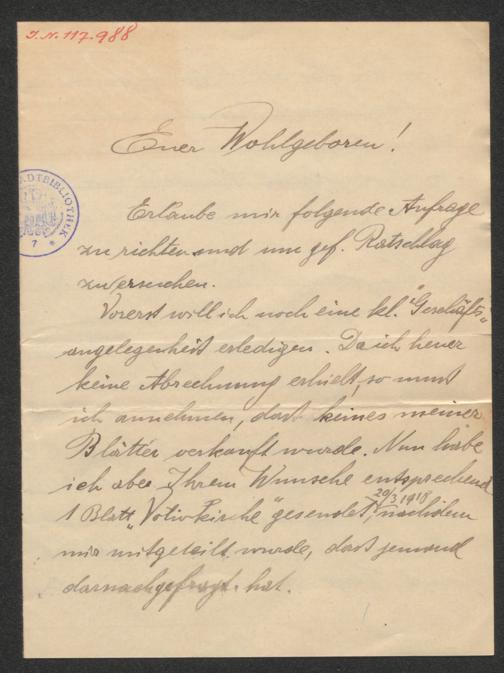 J. N. 117.988
Euer Wohlgeboren!
DTBIBLIOTHEK
7
Erlaube mir folgende Anfrage
zu richten und um gef. Ratschlag
zu ersuchen.
Vorerst will ich noch eine kl. "Geschäfts"
angelegenheit erledigen. Da ich heuer
keine Abrechnung erhielt, so muss
ich annehmen, dass keines meiner
Blätter verkauft wurde. Nun habe
ich aber Ihrem Wunsche entsprechend
20/3 1918
1 Blatt „Votivkirche" gesendet, nachdem
mir mitgeteilt wurde, dass jemand
darnach gefragt hat.